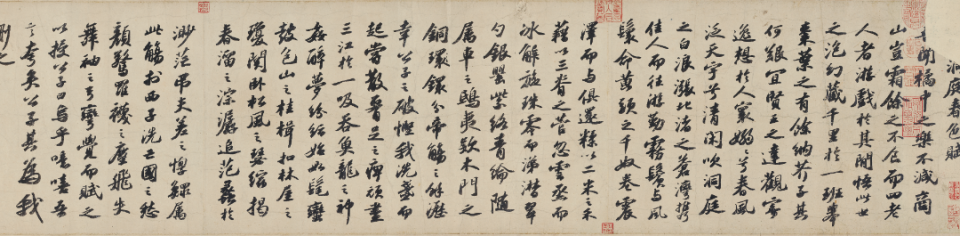 洞庭春色賦
吾聞橘中之樂不減商
山豈霜餘之不食而四老
人者遊戲於其間悟此世
之泡幻藏千里於一班舉
棗葉之有餘納芥子其
何艱宜賢王之達觀寄
逸想於人寰嫋嫋兮春風
泛天宇兮清閑吹洞庭
之白浪漲北渚之蒼灣攜
佳人而往遊勤霧鬢與風
鬟命黃頭之千奴卷震
澤而與俱還糅以二米之禾
藉以三脊之菅忽雲烝而
冰解旋珠零而涕潸翠
勺銀罌紫絡青綸隨
屬車之鴟夷款木門之
銅環鐶分帝觴之餘瀝
幸公子之破慳我洗盞而
起嘗散腰足之痺頑盡
三江於一吸吞魚龍之神
姦醉夢紛紜始如髦蠻
鼓包山之桂楫扣林屋之
瓊關臥松風之瑟縮揭
春溜之淙潺追范蠡於
渺茫弔夫差之惸鰥屬
此觴於西子洗亡國之愁
顏驚羅襪之塵飛失
舞袖之弓彎覺而賦之
以授公子曰烏乎噫嘻吾
言夸矣公子其為我
刪之